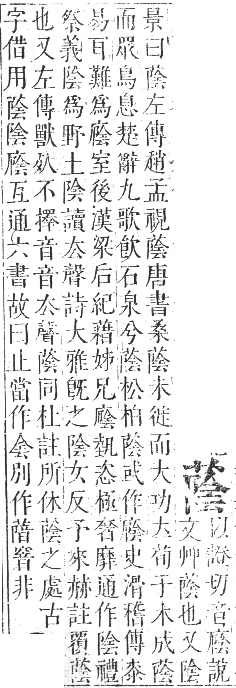 蔭
切音廕說
文艸蔭也又陰
景曰蔭左傳趙孟視蔭唐書桑蔭未徙而大功立荀子木成蔭
而眾鳥息楚辭九歌飲石泉兮蔭松柏蔭或作廕史滑稽傳漆
易耳難爲廕室後漢梁后紀藉姊兄廕埶恣極奢靡通作陰禮
祭義陰爲野土陰讀去聲詩大雅旣之陰女反予來赫註覆蔭
也又左傳獸死不擇音音去聲蔭同杜註所休蔭之處古
字借用蔭陰廕互通六書故曰止當作侌別作非